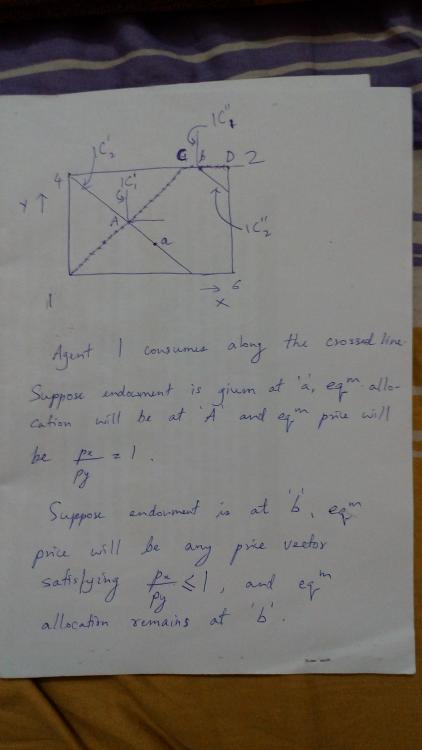 IC₁''
IC₂'
C b D 2
4
IC₁'
Y ↑
A
a
IC₂''
1
→ 6
X
Agent 1 consumes along the crossed line.
Suppose endowment is given at 'a', eqᵐ allo-
cation will be at 'A' and eqᵐ price will
be px/py = 1.
Suppose endowment is at 'b', eqᵐ
price will be any price vector
satisfying px/py ≤ 1, and eqᵐ
allocation remains at 'b'.